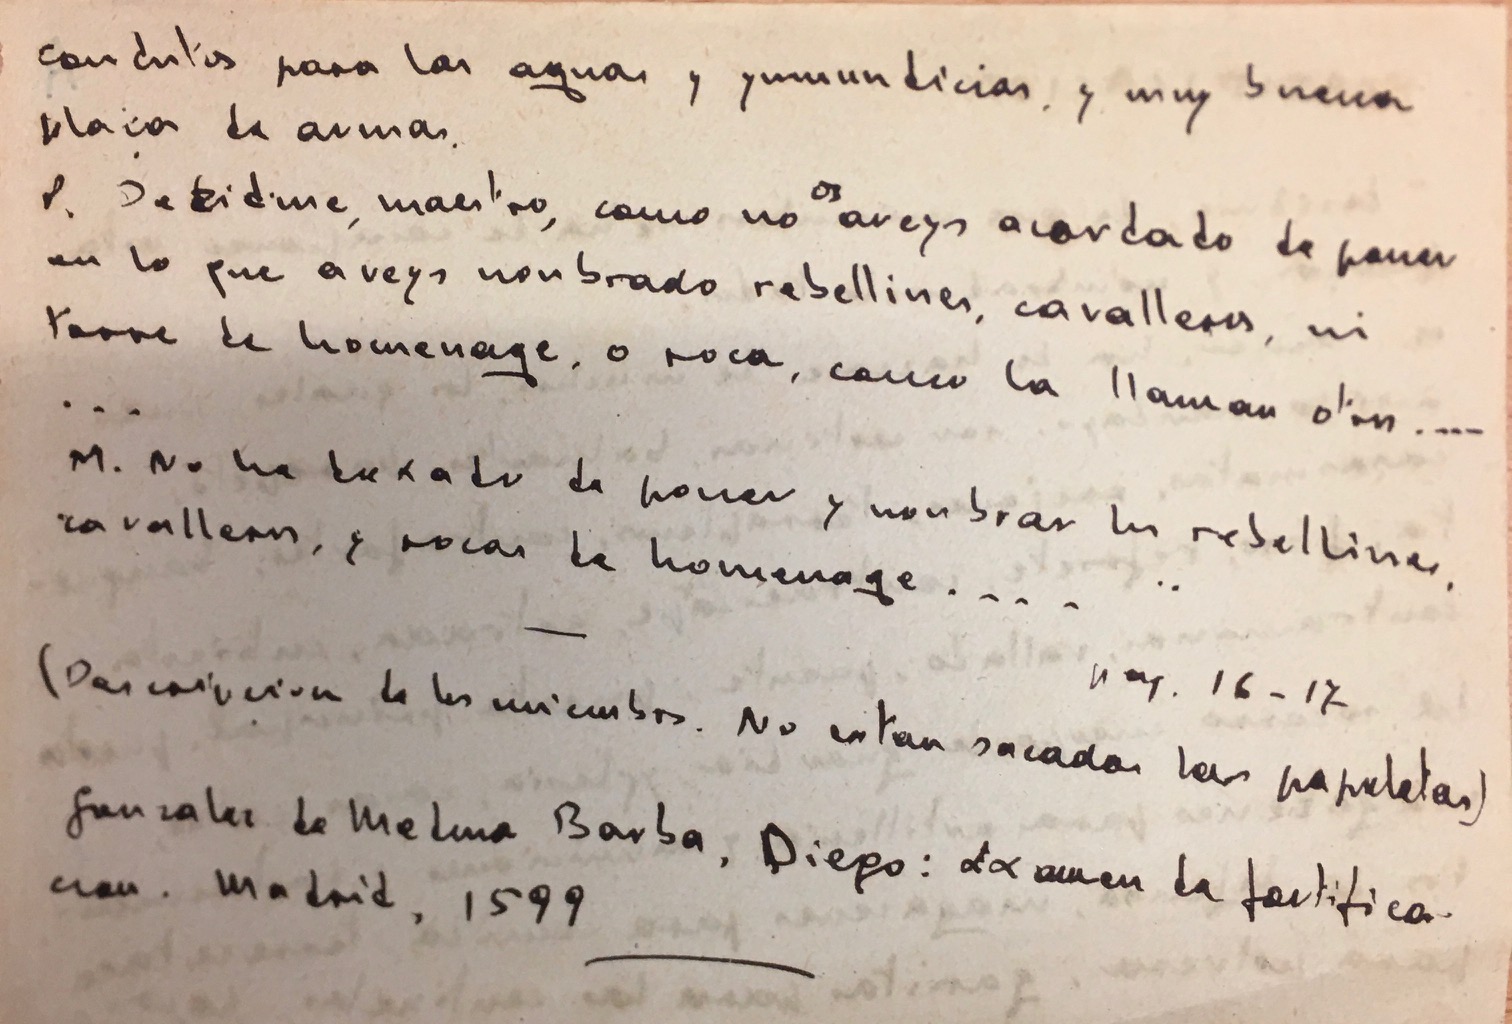 conductos para las aguas y ynmundicias, y muy buena
plaça de armas.
P. Dezidme, maestro, como no os aveys acordado de poner
en lo que aveys nonbrado rebellines, cavalleros, ni
torre de homenage, o roca, como la llaman otros....
...
M. No he dexado de poner y nonbrar los rebellines,
cavalleros, y rocas de homenage.... ..
pag. 16-17
(Descripcion de los miembros. No estan sacadas las papeletas)
Gonzalez de Medina Barba, Diego: Examen de fortifica-
cion. Madrid, 1599